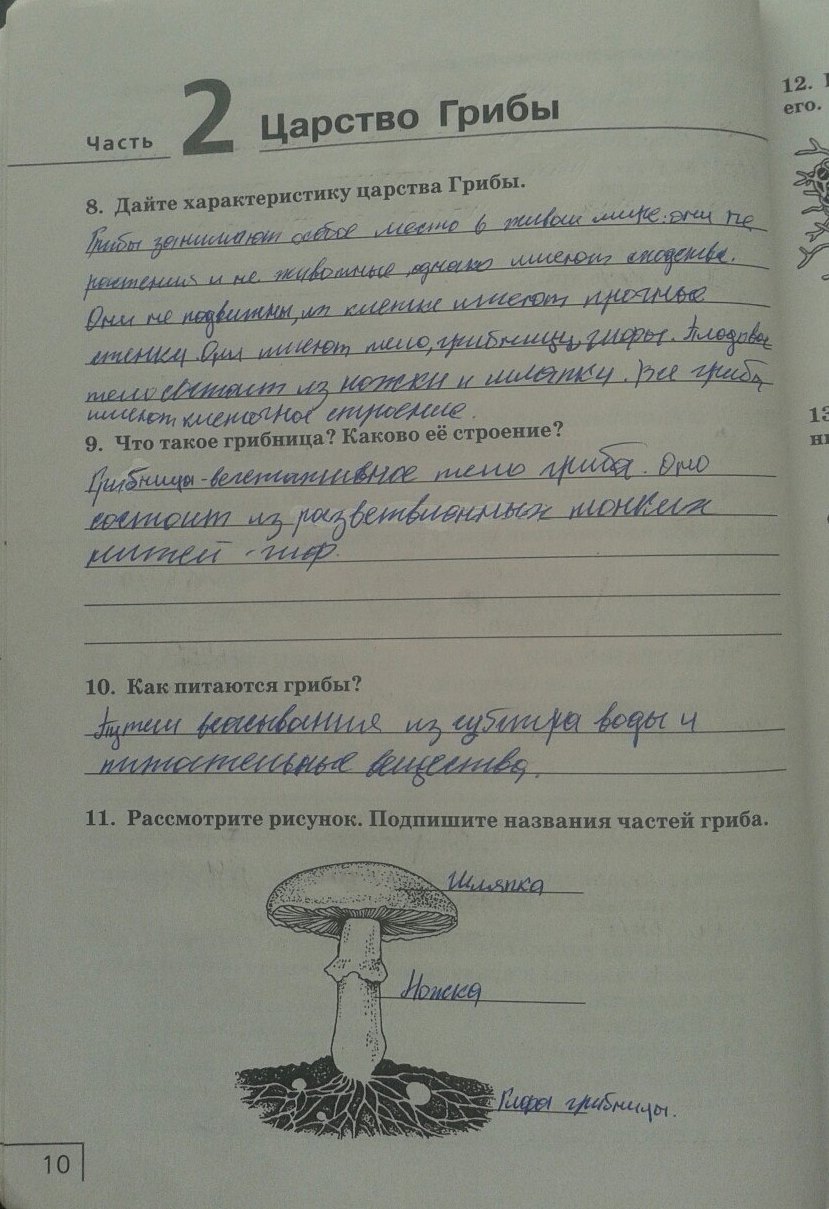 12.
его.
Часть 2 Царство Грибы
8. Дайте характеристику царства Грибы.
Грибы занимают особое место в живом мире: они не
растения и не животные, однако имеют сходства.
Они не подвижны, их клетки имеют прочные
стенки. Они имеют тело, грибницу, гифы. Плодовое
тело состоит из ножки и шляпки. Все грибы
имеют клеточное строение.
13
9. Что такое грибница? Каково её строение?
Грибница - вегетативное тело гриба. Оно
состоит из разветвленных тонких
нитей - гиф.
10. Как питаются грибы?
Путем всасывания из субстра воды и
питательные вещества.
11. Рассмотрите рисунок. Подпишите названия частей гриба.
Шляпка
Ножка
Гифы грибницы.
10